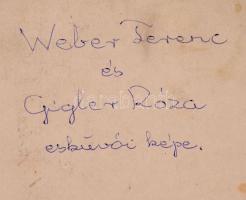 Weber Ferenc
és
Gigler Róza
esküvői képe.